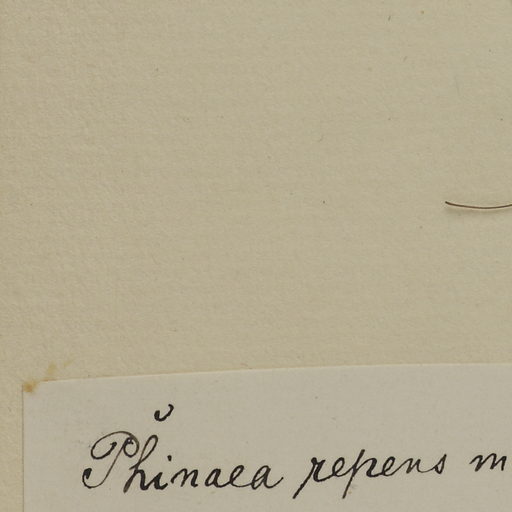 Phinaea repens m